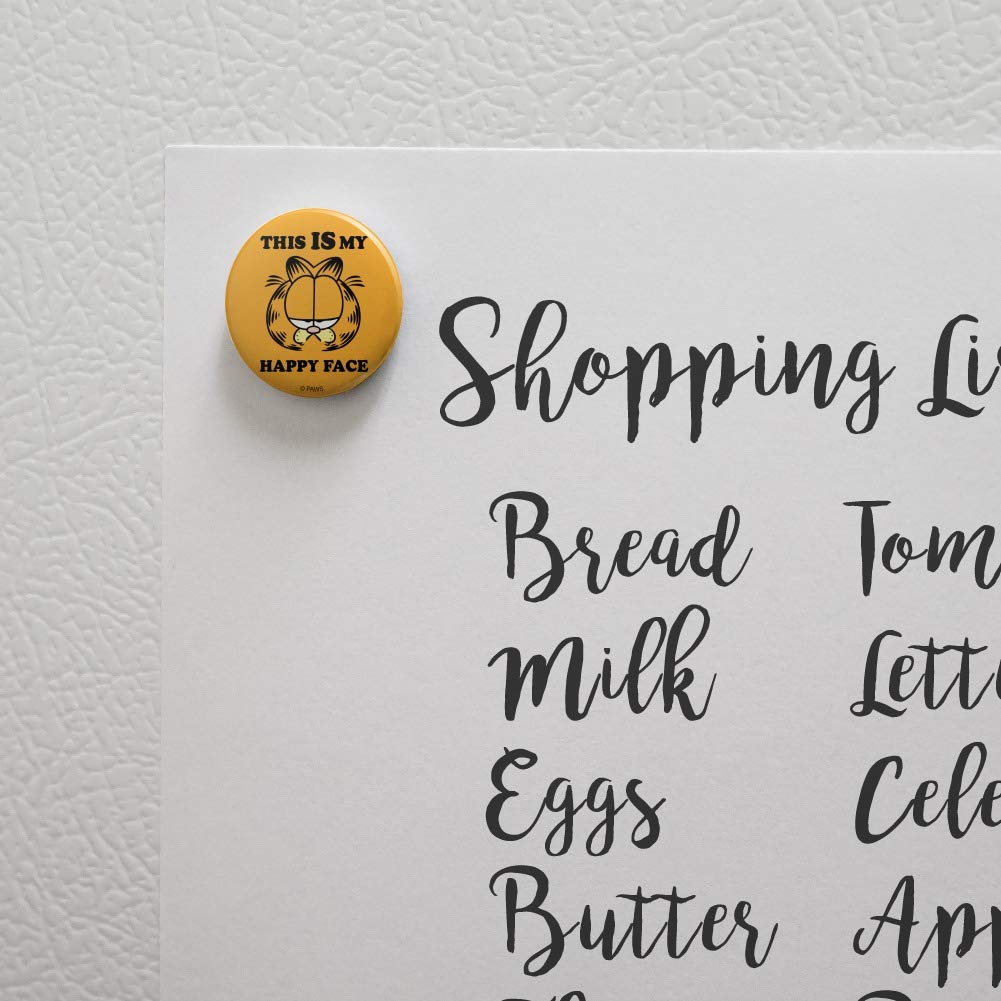 THIS IS MY
HAPPY FACE
© PAWS
Shopping Li
Bread
Milk
Eggs
Butter
Tom
Lett
Cele
App